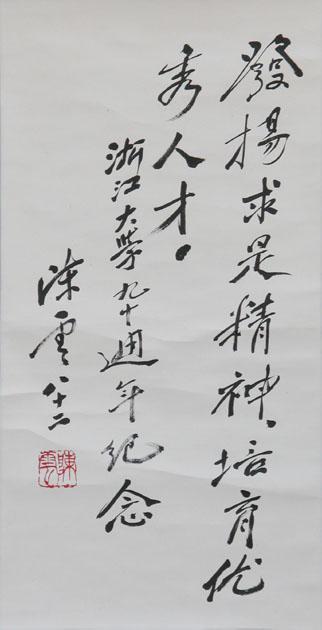 發揚求是精神、培育优
秀人才。
浙江大學九十週年紀念
陳雲 八十二
陳雲